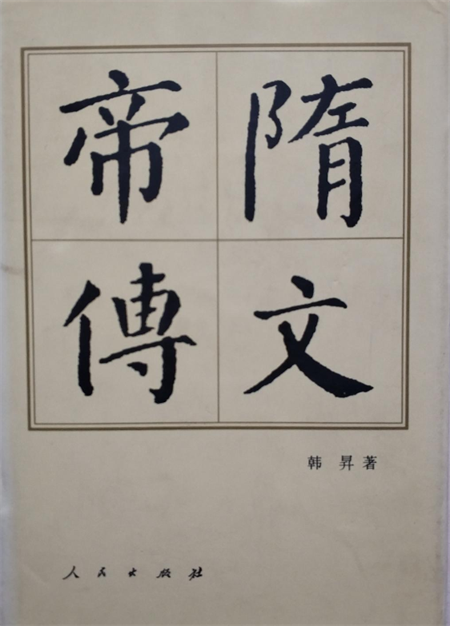 隋文
帝傳
韩昇著
人民出版社